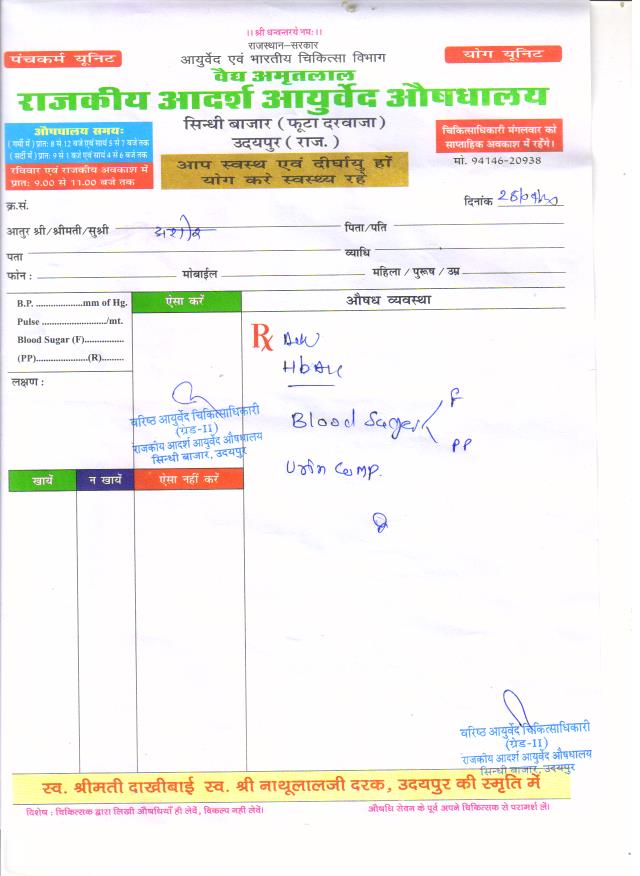 ।। श्री धन्वन्तरये नमः ।।
राजस्थान-सरकार
पंचकर्म यूनिट
आयुर्वेद एवं भारतीय चिकित्सा विभाग
योग यूनिट
वैद्य अमृतलाल
राजकीय आदर्श आयुर्वेद औषधालय
औषधालय समयः
( गर्मी में ) प्रातः 8 से 12 बजे एवं सायं 5 से 7 बजे तक
( सर्दी में ) प्रातः 9 से 1 बजे एवं सायं 4 से 6 बजे तक
रविवार एवं राजकीय अवकाश में
प्रातः 9.00 से 11.00 बजे तक
सिन्धी बाजार ( फूटा दरवाजा )
उदयपुर ( राज. )
चिकित्साधिकारी मंगलवार को
साप्ताहिक अवकाश में रहेंगे।
मो. 94146-20938
आप स्वस्थ एवं दीर्घायु हों
योग करे स्वस्थ्य रहें
क्र.सं.
दिनांक
आतुर श्री/श्रीमती/सुश्री पिता/पति
पता व्याधि
फोन : मोबाईल महिला / पुरूष / उम्र
B.P. ...................mm of Hg.
Pulse ........................../mt.
Blood Sugar (F)................
(PP)......................(R).........
लक्षण :
ऐसा करें
औषध व्यवस्था
Rx
Blood Suger F
PP
Urin Comp.
वरिष्ठ आयुर्वेद चिकित्साधिकारी
(ग्रेड-II)
राजकीय आदर्श आयुर्वेद औषधालय
सिन्धी बाजार, उदयपुर
खायें न खायें ऐसा नहीं करें
वरिष्ठ आयुर्वेद चिकित्साधिकारी
(ग्रेड-II)
राजकीय आदर्श आयुर्वेद औषधालय
सिन्धी बाजार, उदयपुर
स्व. श्रीमती दाखीबाई स्व. श्री नाथूलालजी दरक, उदयपुर की स्मृति में
विशेष : चिकित्सक द्वारा लिखी औषधियाँ ही लेवें, विकल्प नहीं लेवें।
औषधि सेवन के पूर्व अपने चिकित्सक से परामर्श लें।